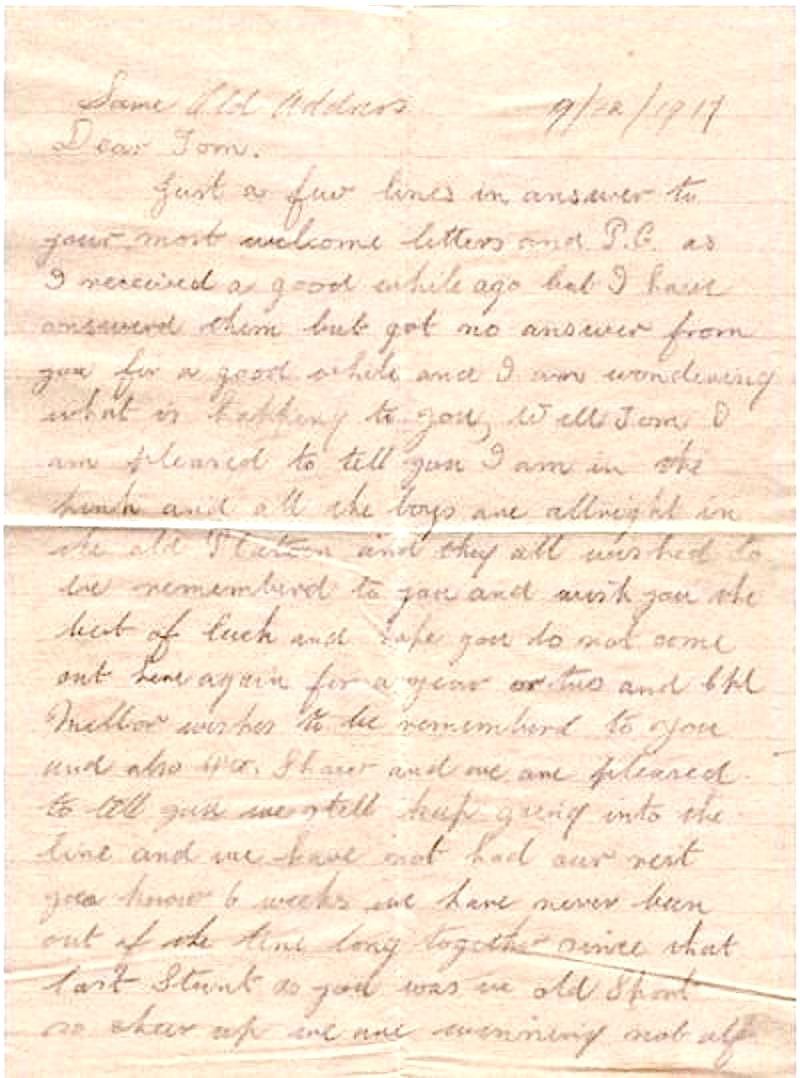 Same Old Address 9/12/1917
Dear Tom.
Just a few lines in answer to
your most welcome letters and P.C. as
I received a good while ago but I have
answerd them but got no answer from
you for a good while and I am wondering
what is happing to you, Well Tom I
am pleased to tell you I am in the
pink and all the boys are allright in
the old Platoon and they all wished to
be rememberd to you and wish you the
best of luck and hope you do not come
out here again for a year or two and Cpl
wishes to be rememberd to you
and also Shaw and we are pleased
to tell you we still keep going into the
line and we have not had our rest
you know 6 weeks we have never been
out of the line long together since that
last Stunt as you was in old Sport
so cheer up we are winning not alf